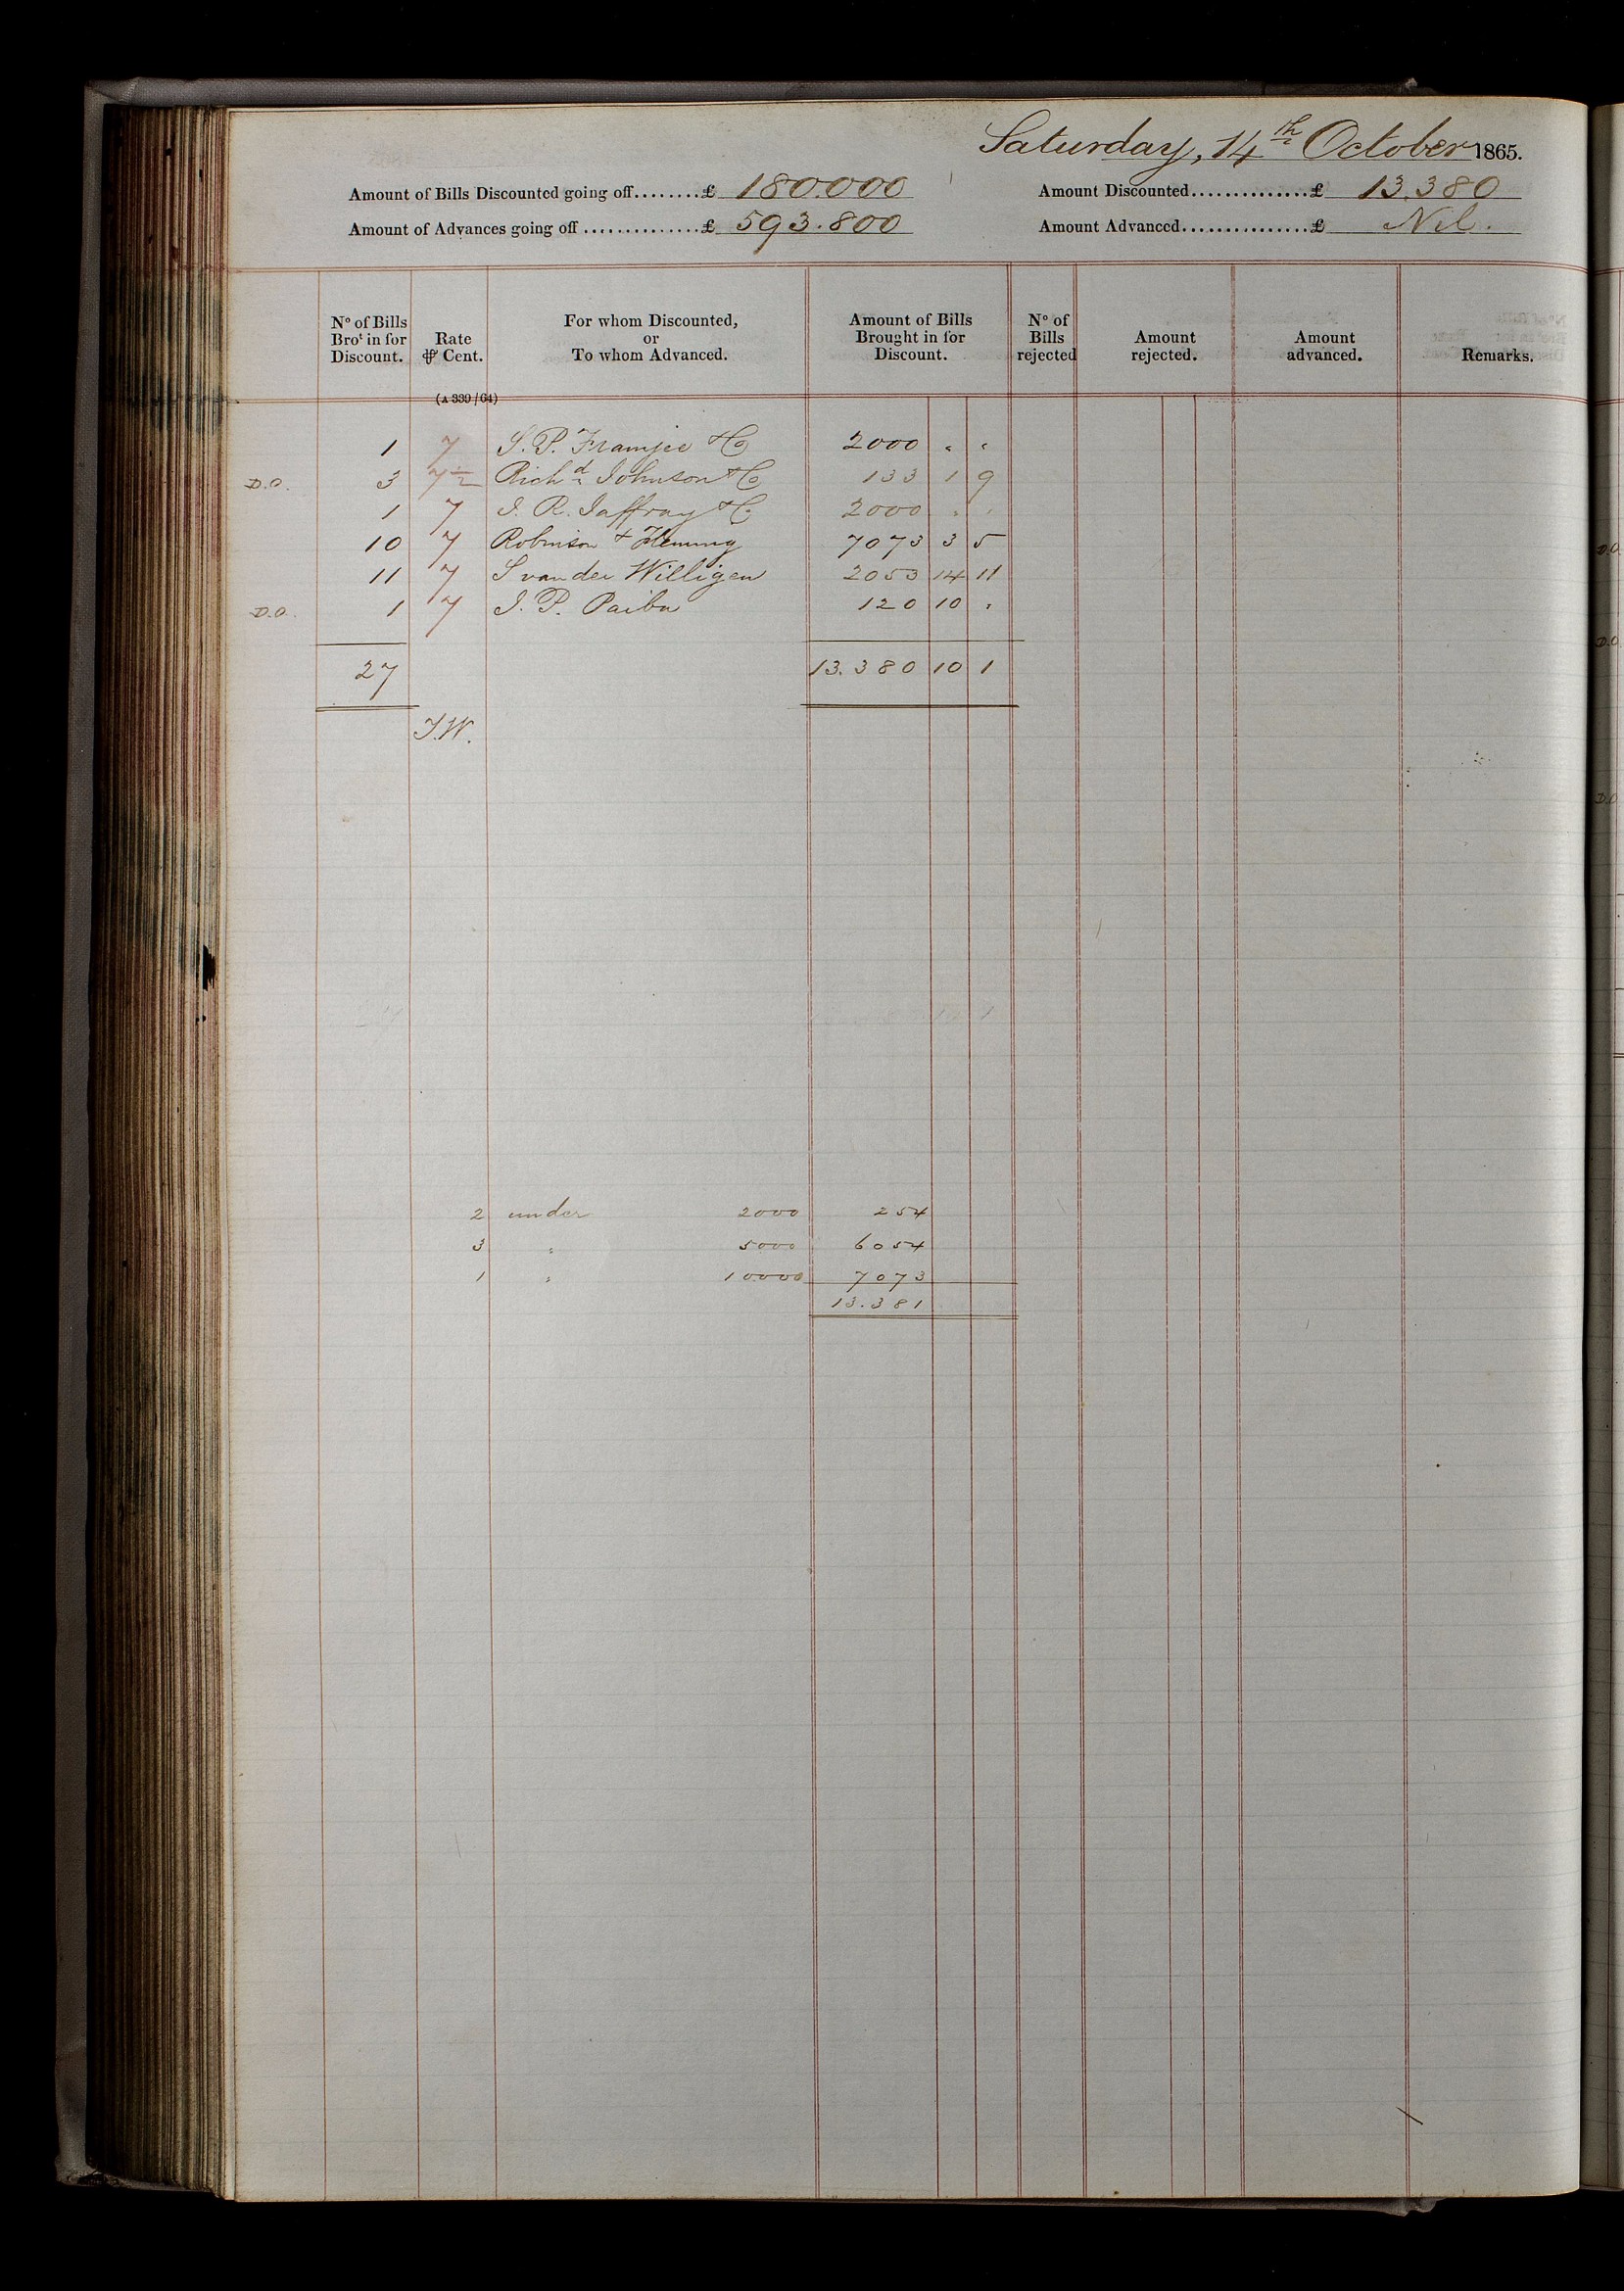 Saturday, 14th October 1865.
Amount of Bills Discounted going off........£ 180.000 Amount Discounted..............£ 13.380
Amount of Advances going off ..............£ 593.800 Amount Advanced................£ Nil.
No of Bills Brot in for Discount. Rate ⅌ Cent. For whom Discounted, or To whom Advanced. Amount of Bills Brought in for Discount. No of Bills rejected Amount rejected. Amount advanced. Remarks.
(A 339/64)
1 7 S. P. Framjee & Co 2000 " "
D.O. 3 7½ Richd Johnson & Co 133 1 9
1 7 J. R. Jaffray & Co 2000 " "
10 7 Robinson & Fleming 7073 3 5
11 7 S van der Willigen 2053 14 11
D.O. 1 7 J. P. Paiba 120 10 "
27 13.380 10 1
J.W.
2 under 2000 254
3 " 5000 6054
1 " 10000 7073
13.381